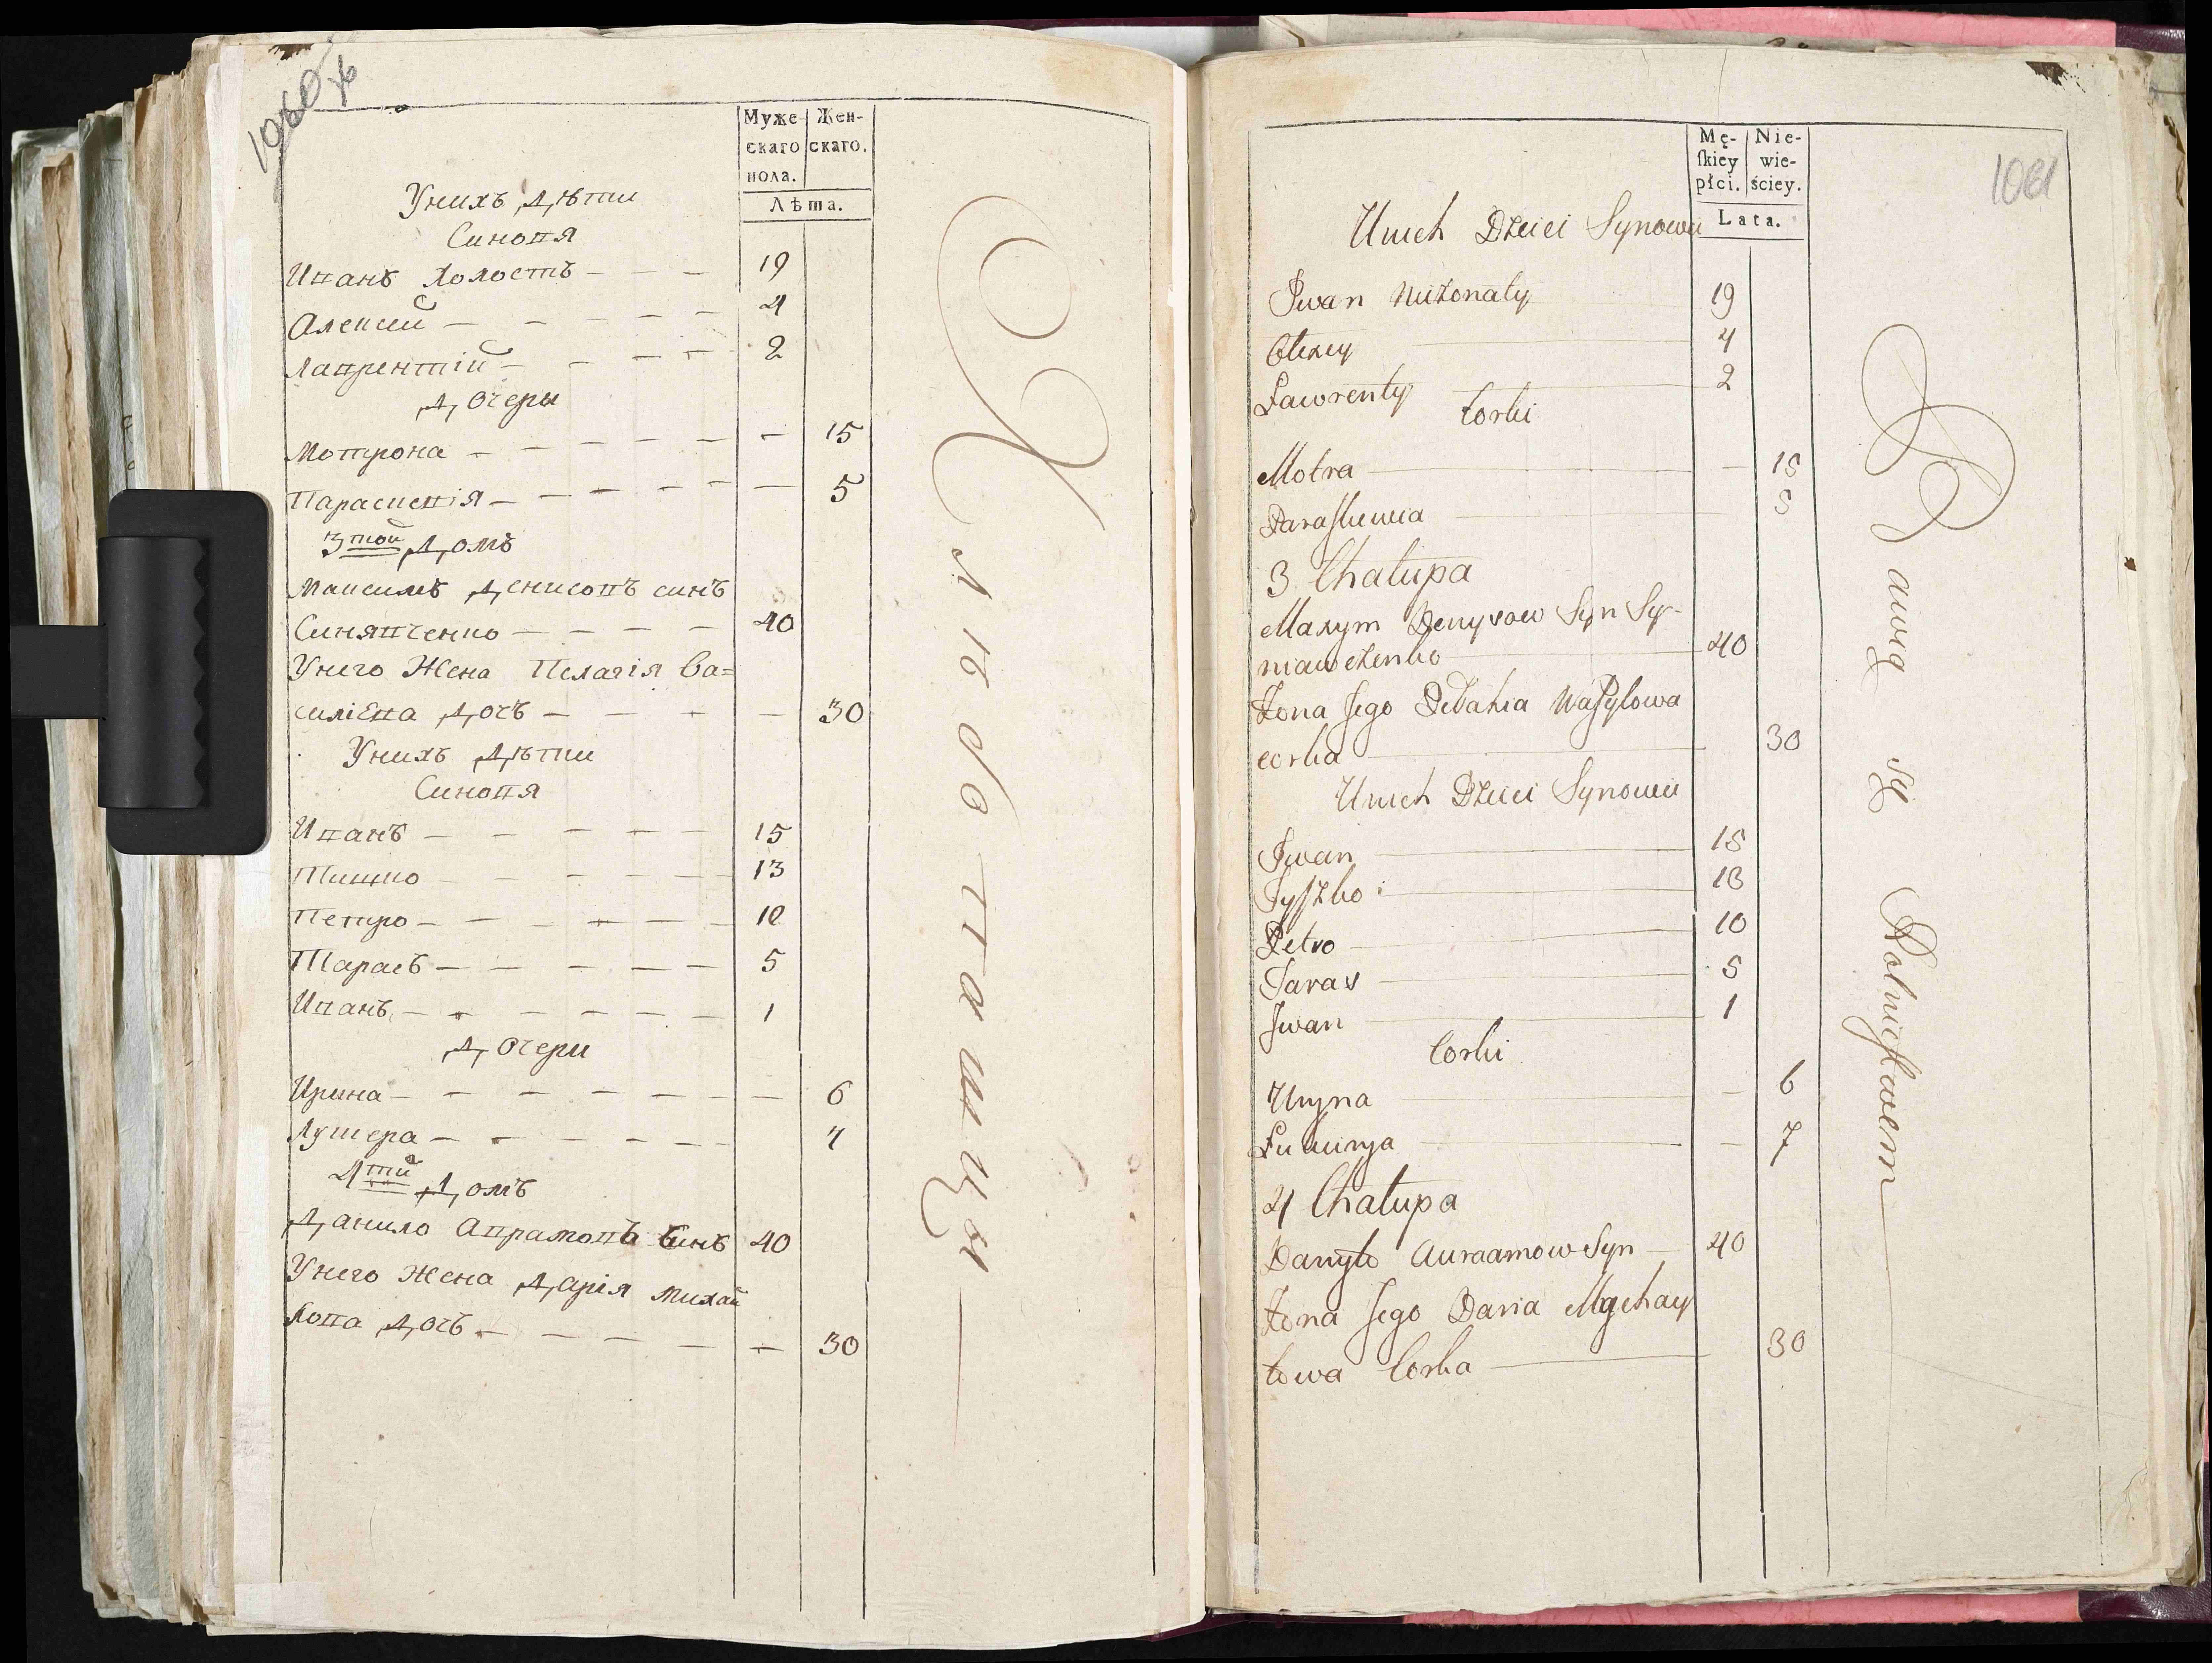 1060 зв
Муже-
скаго
пола.
Жен-
скаго.
Лѣта.
Унихъ Дѣти
Синовя
Иванъ Холостъ - - - 19
Алексий - - - - - 4
Лаврентїй - - - - - 2
Дочеры
Мотрона - - - - - - 15
Параскевїя - - - - - - 5
3той Домъ
Максимъ Денисовъ синъ
Синявченко - - - - 40
Унего Жена Пелагія Ва=
силіева Дочъ - - - - 30
Унихъ Дѣти
Синовя
Иванъ - - - - - 15
Тишко - - - - - 13
Петро - - - - - 10
Тарасъ - - - - - 5
Иванъ - - - - - - 1
Дочери
Ирина - - - - - - - 6
Лукера - - - - - 7
4тй Домъ
Данило Аврамовъ Синъ 40
Унего Жена Дарія Михай
лова Дочъ - - - - - 30
Хлѣбопашцы
1061
Mę-
ſkiey
płci.
Nie-
wie-
ściey.
Lata.
Unich Dzieci Synowie
Iwan Nieżonaty 19
Olexey 4
Ławrenty 2
Corki
Motra - 15
Paraskiewia 5
3 Chałupa
Maxym Denysow Syn Sy-
niawczenko 40
Żona Jego Pełahia Wasylowa
corka 30
Unich Dzieci Synowie
Iwan 15
Tyszko 13
Petro 10
Taras 5
Iwan 1
Corki
Uryna - 6
Łukirya - 7
4 Chałupa
Danyło Auraamow Syn 40
Żona Jego Daria Mychay
łowa Corka 30
Bawią się Rolnictwem